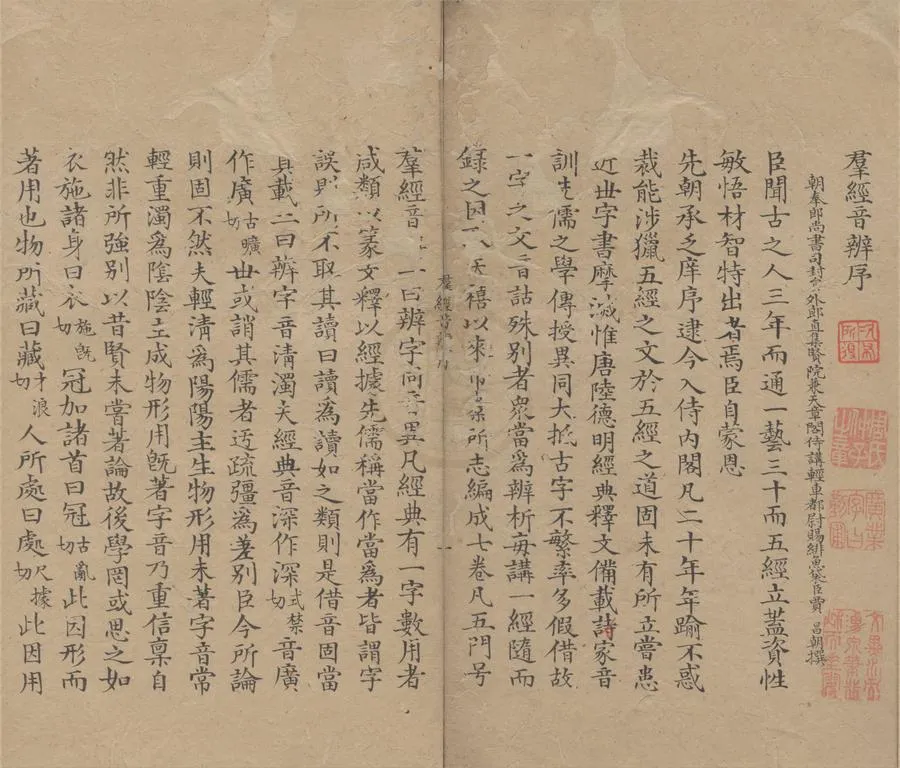 羣經音辨序
朝奉郎尚書司封員外郎直集賢院兼天章閣侍講輕車都尉賜緋魚袋臣賈昌朝撰
臣聞古之人三年而通一藝三十而五經立蓋資性
敏悟材智特出者焉臣自蒙恩
先朝承乏庠序逮今入侍內閣凡二十年年踰不惑
裁能涉獵五經之文於五經之道固未有所立嘗患
近世字書摩滅惟唐陸德明經典釋文備載諸家音
訓先儒之學傳授異同大抵古字不繁率多假借故
一字之文音詁殊別者衆當爲辨析每講一經隨而
錄之因天禧以來所志編成七卷凡五門号
羣經音一曰辨字同音異凡經典有一字數用者
咸類以篆文釋以經據先儒稱當作當爲者皆謂字
誤則所不取其讀曰讀爲讀如之類則是借音固當
具載二曰辨字音清濁夫經典音深作深式禁切音廣
作廣古曠切世或誚其儒者迃疏彊爲差別臣今所論
則固不然夫輕清爲陽陽主生物形用未著字音常
輕重濁爲陰陰主成物形用旣著字音乃重信禀自
然非所強別以昔賢未嘗著論故後學罔或思之如
衣施諸身曰衣施旣切冠加諸首曰冠古亂切此因形而
著用也物所藏曰藏才浪切人所處曰處尺據切此因用